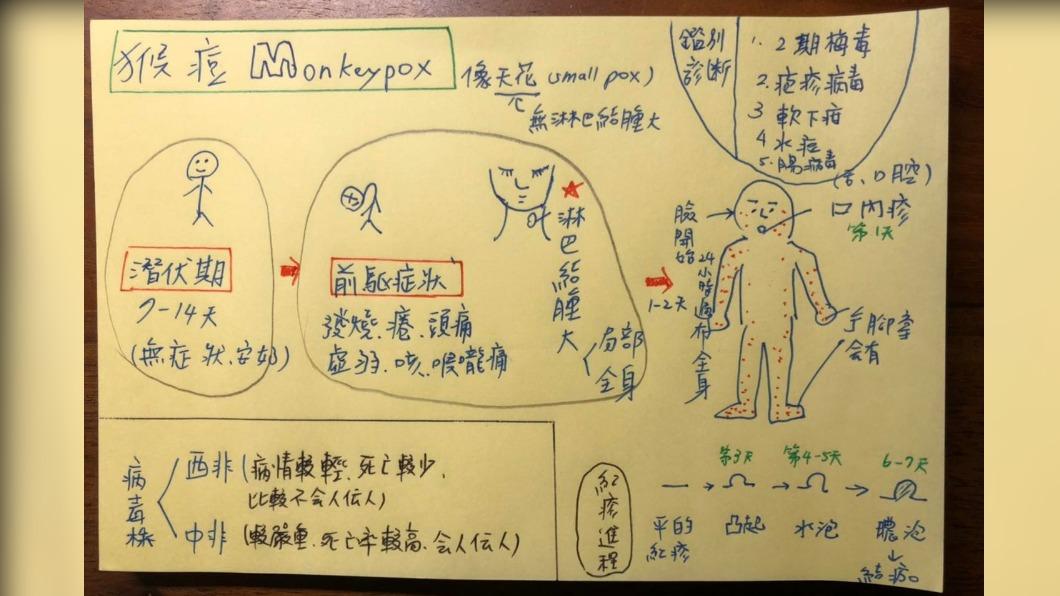 猴痘 Monkeypox
像天花 (small pox)
無淋巴結腫大
鑑別
診斷
1. 2期梅毒
2. 疱疹病毒
3 軟下疳
4 水痘
5. 腸病毒
潛伏期
7-14天
(無症狀、安好)
前驅症狀
發燒、倦、頭痛
虛弱、咳、喉嚨痛
淋巴結腫大
局部
全身
1-2天
臉開始
24小時遍布全身
(舌、口腔)
口內疹
第1天
手腳掌
会有
病毒株
西非 (病情較輕、死亡較少、
比較不会人伝人)
中非 (較嚴重、死亡率較高、会人伝人)
紅疹進程
平的
紅疹
第3天
凸起
第4-5天
水泡
6-7天
膿泡
結痂